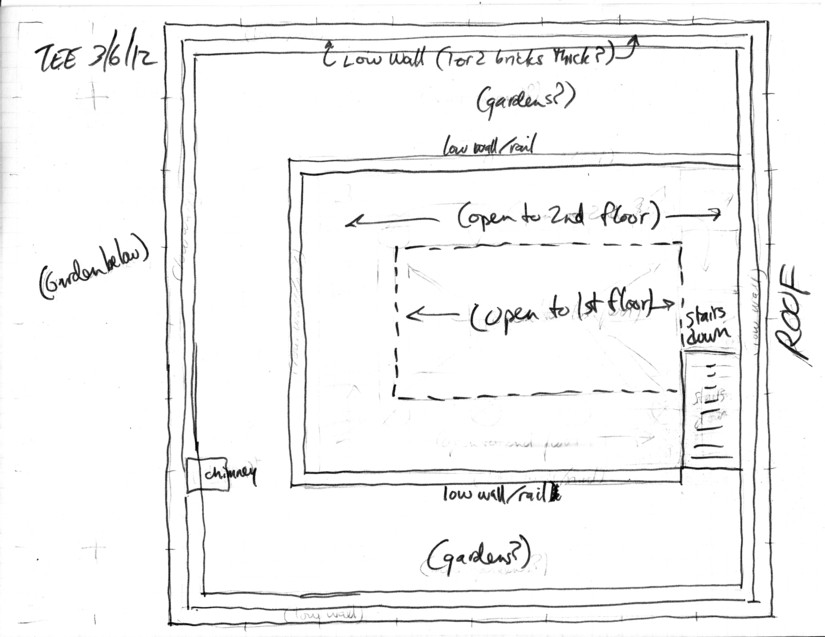 TEE 3/6/12
Low wall (1 or 2 bricks thick?)
(gardens?)
low wall/rail
(open to 2nd floor)
(Garden below)
(open to 1st floor)
stairs
down
ROOF
(low wall)
chimney
low wall/rail
(gardens?)
(low wall)